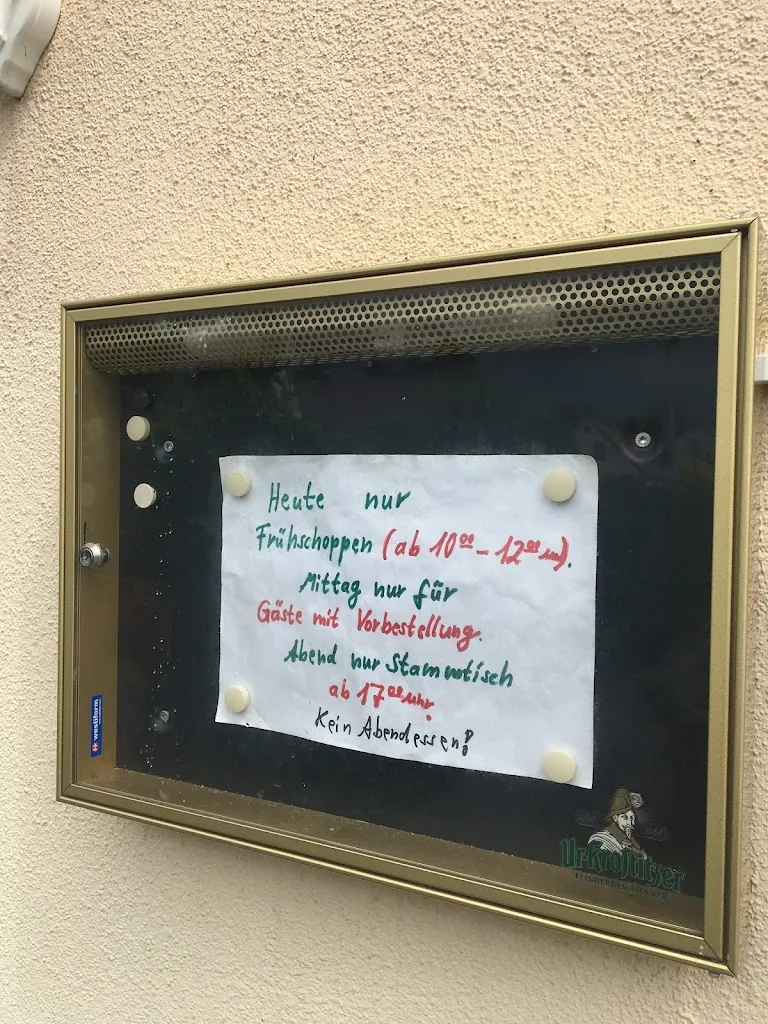 Heute nur
Frühschoppen (ab 10⁰⁰ - 12⁰⁰ Uhr).
Mittag nur für
Gäste mit Vorbestellung.
Abend nur Stammtisch
ab 17⁰⁰ Uhr.
Kein Abendessen!
westiform
Ur-Krostitzer